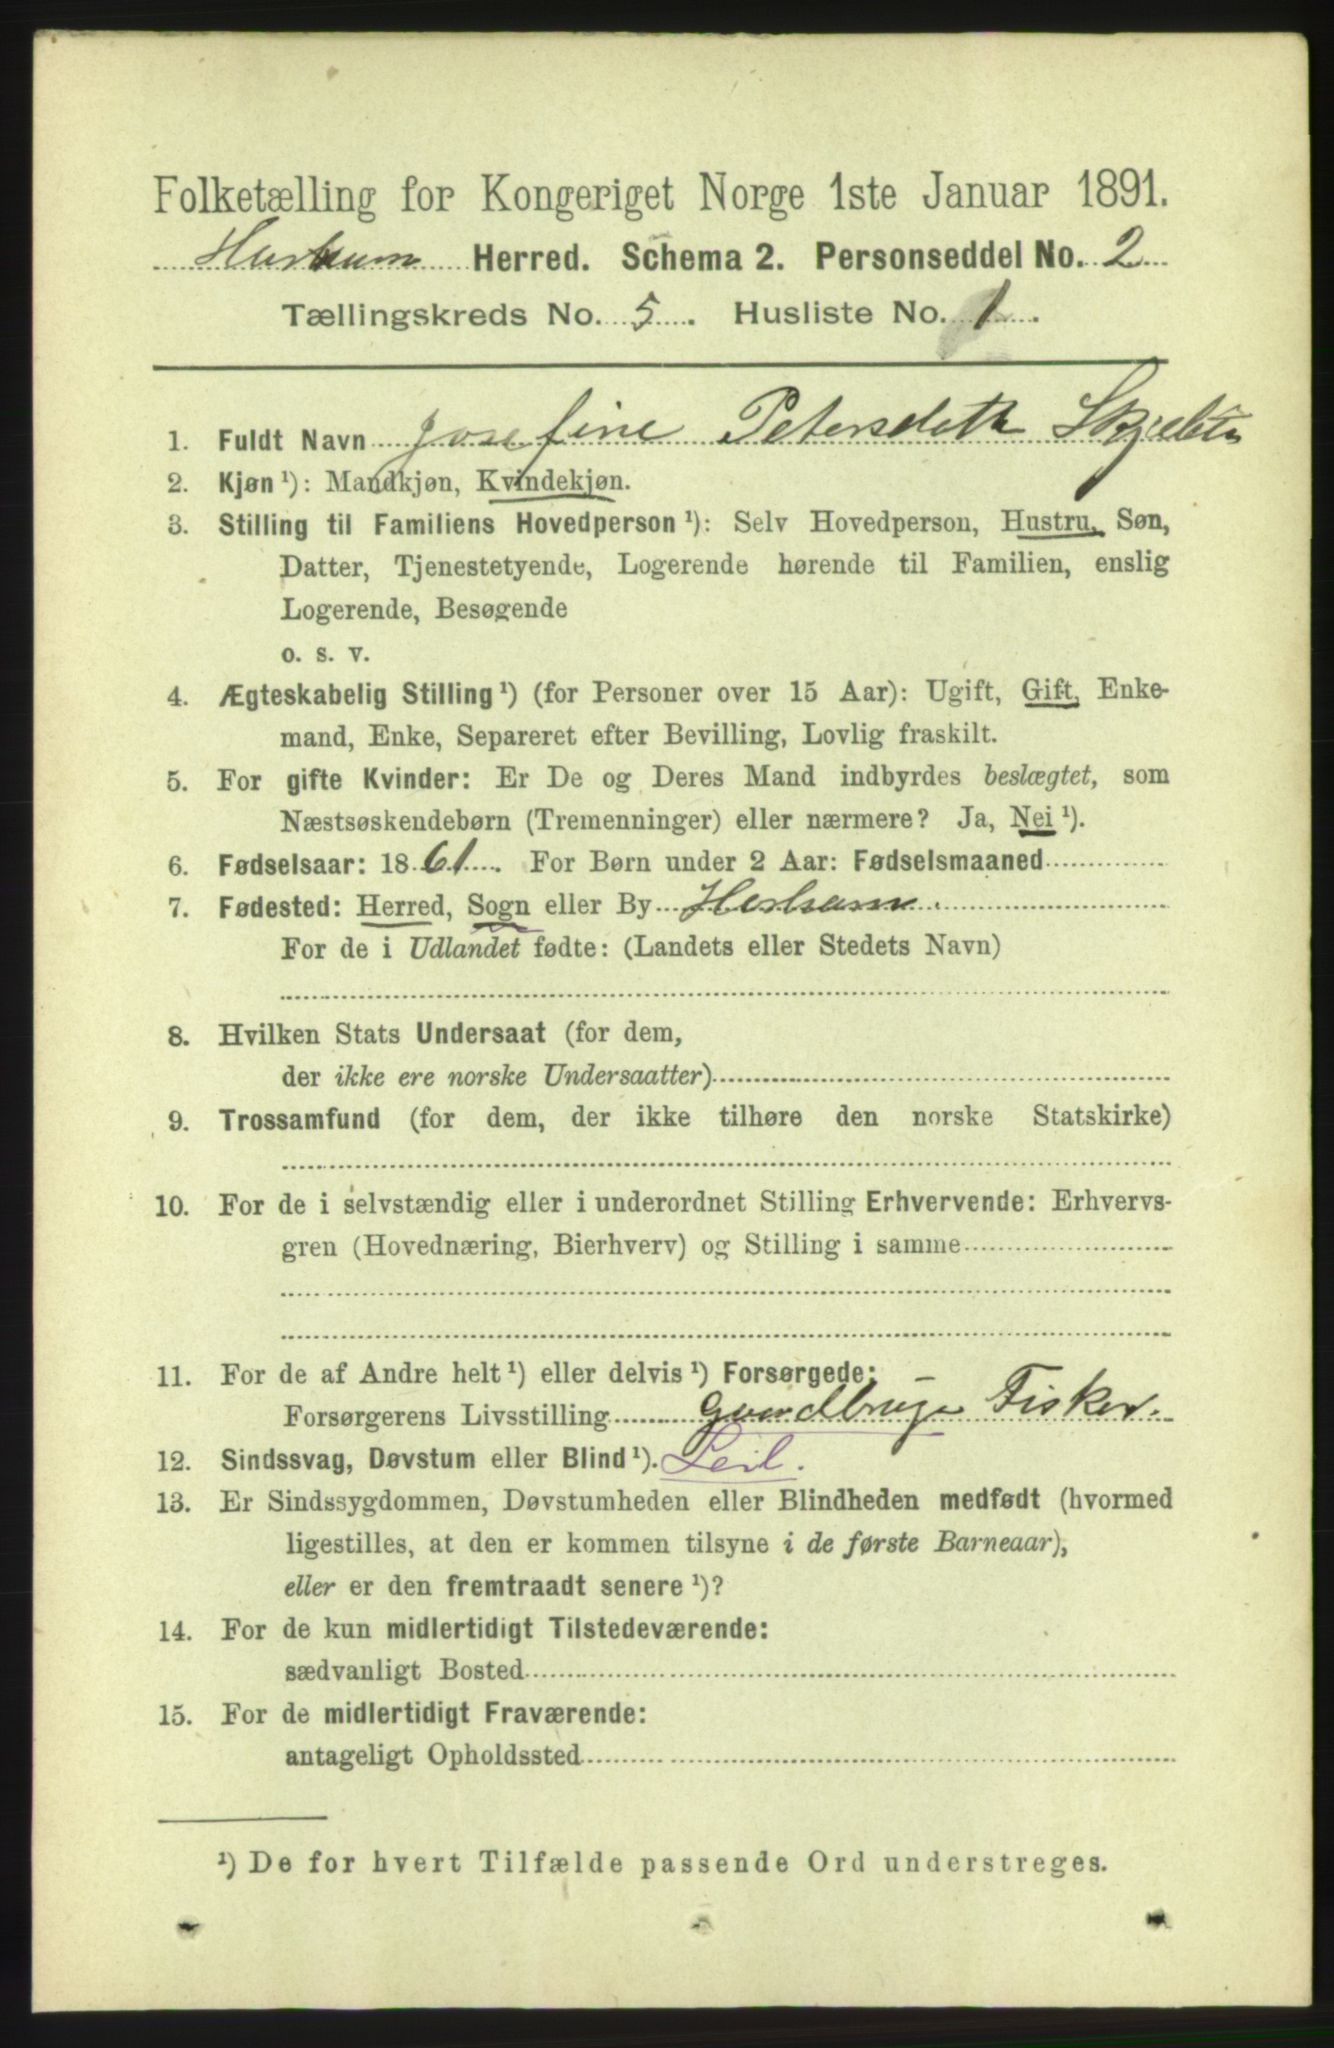 Folketælling for Kongeriget Norge 1ste Januar 1891.
Herred. Schema 2. Personseddel No. 2
Tællingskreds No. 5. Husliste No. 1.
1. Fuldt Navn Josefine Petersdatt
2. Kjøn ¹): Mandkjøn, Kvindekjøn.
3. Stilling til Familiens Hovedperson ¹): Selv Hovedperson, Hustru, Søn,
Datter, Tjenestetyende, Logerende hørende til Familien, enslig
Logerende, Besøgende
o. s. v.
4. Ægteskabelig Stilling ¹) (for Personer over 15 Aar): Ugift, Gift, Enke-
mand, Enke, Separeret efter Bevilling, Lovlig fraskilt.
5. For gifte Kvinder: Er De og Deres Mand indbyrdes beslægtet, som
Næstsøskendebørn (Tremenninger) eller nærmere? Ja, Nei ¹).
6. Fødselsaar: 1861. For Børn under 2 Aar: Fødselsmaaned
7. Fødested: Herred, Sogn eller By
For de i Udlandet fødte: (Landets eller Stedets Navn)
8. Hvilken Stats Undersaat (for dem,
der ikke ere norske Undersaatter)
9. Trossamfund (for dem, der ikke tilhøre den norske Statskirke)
10. For de i selvstændig eller i underordnet Stilling Erhvervende: Erhvervs-
gren (Hovednæring, Bierhverv) og Stilling i samme
11. For de af Andre helt ¹) eller delvis ¹) Forsørgede:
Forsørgerens Livsstilling Fisker.
12. Sindssvag, Døvstum eller Blind ¹). Leil.
13. Er Sindssygdommen, Døvstumheden eller Blindheden medfødt (hvormed
ligestilles, at den er kommen tilsyne i de første Barneaar),
eller er den fremtraadt senere ¹)?
14. For de kun midlertidigt Tilstedeværende:
sædvanligt Bosted
15. For de midlertidigt Fraværende:
antageligt Opholdssted
¹) De for hvert Tilfælde passende Ord understreges.